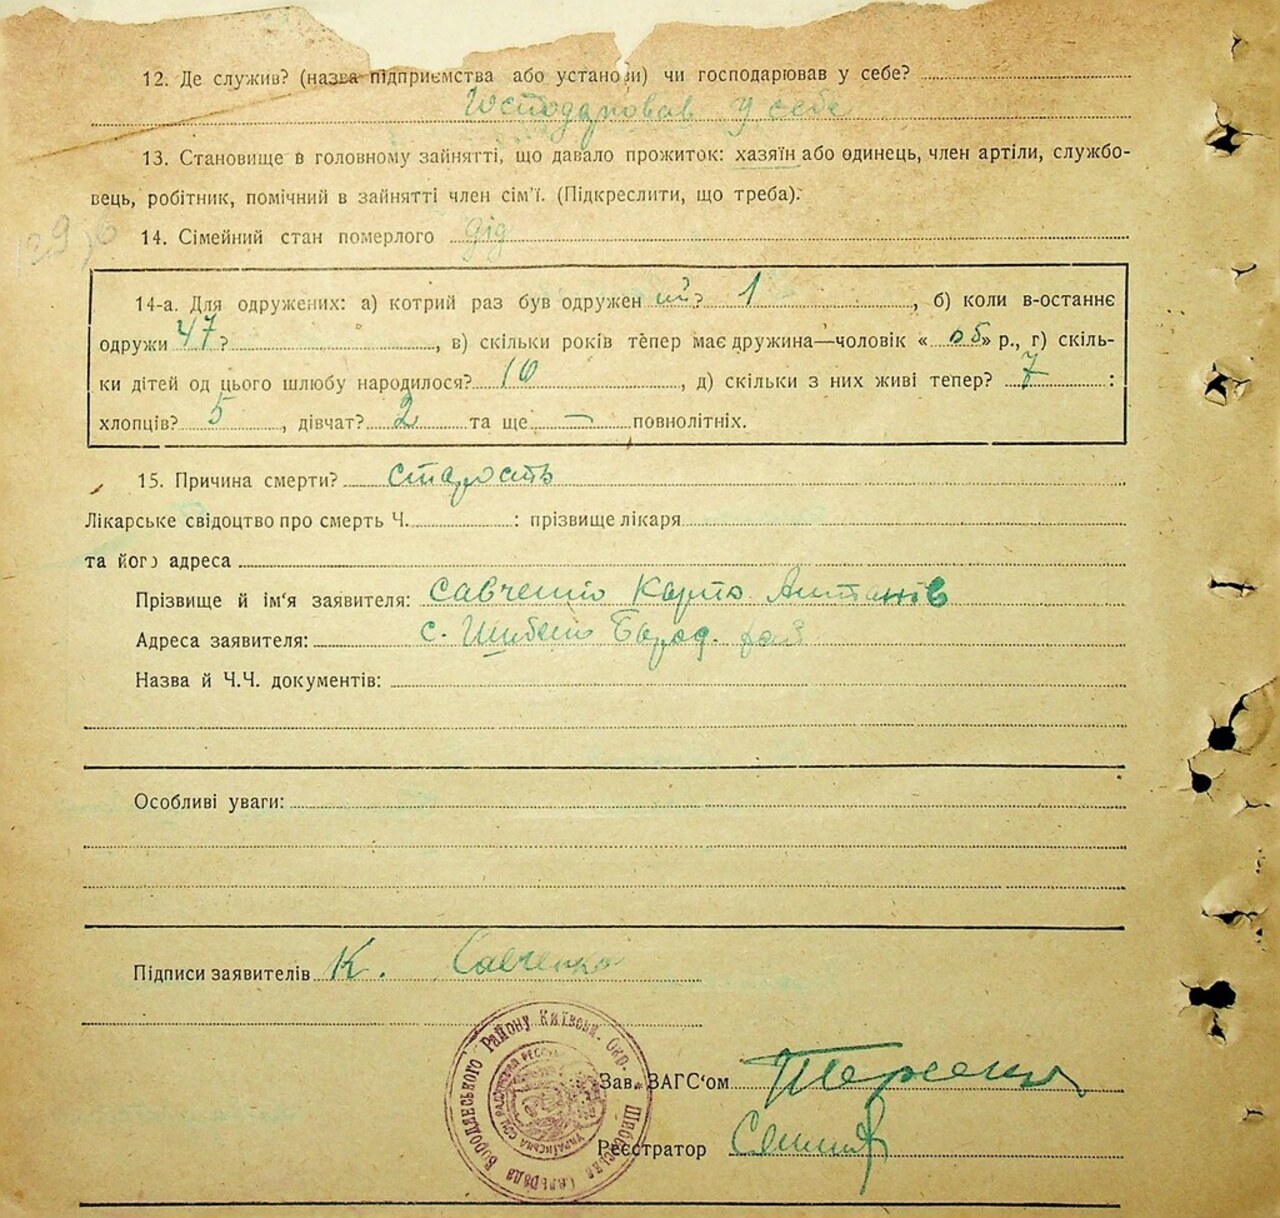 12. Де служив? (назва підприємства або установи) чи господарював у себе?
Господарював у себе
13. Становище в головному зайнятті, що давало прожиток: хазяїн або одинець, член артіли, службо-
вець, робітник, помічний в зайнятті член сім'ї. (Підкреслити, що треба).
14. Сімейний стан померлого дід
14-а. Для одружених: а) котрий раз був одружен ий? 1, б) коли в-останнє
одружи 47?, в) скільки років тепер має дружина—чоловік « 06» р., г) скіль-
ки дітей од цього шлюбу народилося? 10, д) скільки з них живі тепер? 7:
хлопців? 5, дівчат? 2 та ще — повнолітніх.
15. Причина смерти? старость
Лікарське свідоцтво про смерть Ч.: прізвище лікаря
та його адреса
Прізвище й ім'я заявителя: Савченко Карпо Антонів
Адреса заявителя: с. Шибене Бород. рай
Назва й Ч.Ч. документів:
Особливі уваги:
Підписи заявителів К. Савченко
Зав. ЗАГС'ом
Реєстратор
Бородянського Району Київськ. Окр. Шибенська Сільрада
Українська Соц. Радянська Респу